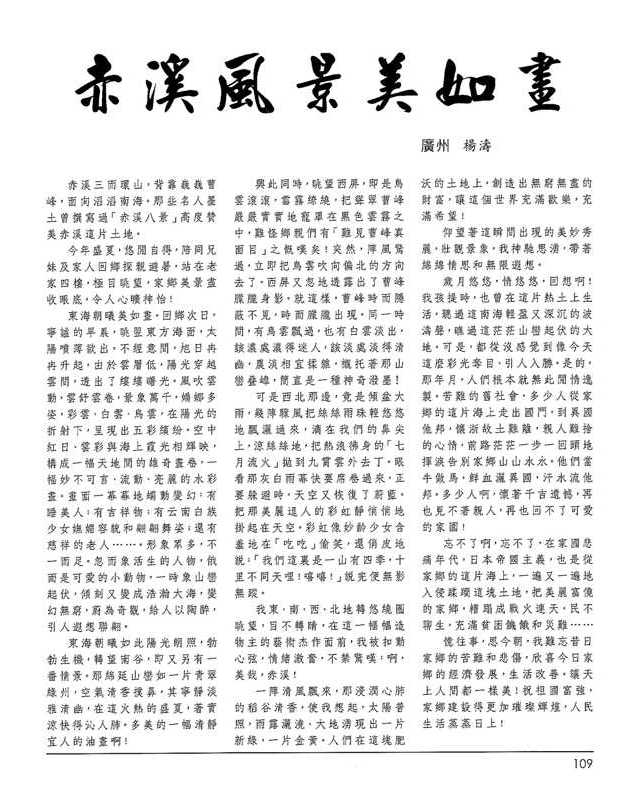 赤溪風景美如畫
廣州　楊濤
赤溪三面環山，背靠巍巍曹
峰，面向滔滔南海。那些名人墨
士曾撰寫過「赤溪八景」高度贊
美赤溪這片土地。
今年盛夏，悠閒自得，陪同兄
妹及家人回鄉探親避暑，站在老
家四樓，極目眺望，家鄉美景盡
收眼底，令人心曠神怡！
東海朝曦美如畫。回鄉次日，
寧謐的早晨，眺望東方海面，太
陽噴薄欲出。不經意間，旭日冉
冉升起，由於雲層低，陽光穿越
雲間，透出了縷縷曙光。風吹雲
動，雲舒雲卷，景象萬千，嬌娜多
姿，彩雲、白雲、烏雲，在陽光的
折射下，呈現出五彩繽紛。空中
紅日、雲彩與海上霞光相輝映，
構成一幅天地間的雄奇畫卷，一
幅妙不可言、流動、亮麗的水彩
畫。畫面一幕幕地蠕動變幻：有
睡美人；有吉祥物；有云南白族
少女嫵媚容貌和翩翩舞姿；還有
慈祥的老人……。形象眾多，不
一而足。忽而象活生的人物，俄
而是可愛的小動物，一時象山巒
起伏，傾刻又變成浩瀚大海，變
幻無窮，蔚為奇觀，給人以陶醉，
引人遐想聯翩。
東海朝曦如此陽光朗照，勃
勃生機，轉望南谷，即又另有一
番情景。那綿延山巒如一片青翠
綠州，空氣清香撲鼻，其寧靜淡
雅清幽，在這火熱的盛夏，著實
涼快得沁人肺。多美的一幅清靜
宜人的油畫啊！
與此同時，眺望西屏，即是烏
雲滾滾，雷霧繚繞，把聳翠曹峰
嚴嚴實實地籠罩在黑色雲霧之
中，難怪鄉親們有「難見曹峰真
面目」之慨嘆矣！突然，陣風驚
過，立即把烏雲吹向偏北的方向
去了。西屏又忽地透露出了曹峰
朦朧身影。就這樣，曹峰時而隱
蔽不見，時而朦朧出現。同一時
間，有烏雲飄過，也有白雲淡出，
該濃處濃得迷人，該淡處淡得清
幽，農淡相宜揉雜，襯托著那山
巒疊峰，簡直是一種神奇潑墨！
可是西北那邊，竟是傾盆大
雨，幾陣驟風把絲絲雨珠輕悠悠
地飄灑過來，滴在我們的鼻尖
上，涼絲絲地，把熱浪彿身的「七
月流火」拋到九霄雲外去了。眼
看那灰白雨幕快要席卷過來，正
要躲避時，天空又恢復了蔚藍。
把那美麗逗人的彩虹靜俏俏地
掛起在天空。彩虹像妙齡少女含
羞地在「吃吃」偷笑，還俏皮地
說：「我們這裏是一山有四季，十
里不同天哩！嘻嘻！」說完便無影
無蹤。
我東、南、西、北地轉悠繞圈
眺望，目不轉睛，在這一幅幅造
物主的藝術杰作面前，我被扣動
心弦，情緒激奮，不禁驚嘆：啊，
美哉，赤溪！
一陣清風飄來，那浸潤心肺
的稻谷清香，使我想起，太陽普
照，雨露灑澆，大地湧現出一片
新綠，一片金黃。人們在這塊肥
沃的土地上，創造出無窮無盡的
財富，讓這個世界充滿歡樂，充
滿希望！
仰望著這瞬間出現的美妙秀
麗，壯觀景象，我神馳思湧，帶著
綿綿情思和無限遐想。
歲月悠悠，情悠悠，回想啊！
我孩提時，也曾在這片熱土上生
活，聽過這南海輕盈又深沉的波
濤聲，瞧過這茫茫山巒起伏的大
地。可是，都從沒感覺到像今天
這麼彩光奪目，引人入勝。是的，
那年月，人們根本就無此閒情逸
製。苦難的舊社會，多少人從家
鄉的這片海上走出國門，到異國
他邦，懷浙故土難離，親人難捨
的心情，前路茫茫一步一回頭地
揮淚告別家鄉山山水水。他們當
牛做馬，鮮血灑異國，汗水流他
邦。多少人啊，懷著千古遺憾，再
也見不著親人，再也回不了可愛
的家國！
忘不了啊，忘不了。在家國悲
痛年代，日本帝國主義，也是從
家鄉的這片海上，一遍又一遍地
入侵蹂躪這塊土地，把美麗富饒
的家鄉，糟蹋成戰火連天。民不
聊生，充滿貧困饑餓和災難……
憶往事，思今朝，我難忘昔日
家鄉的苦難和悲傷，欣喜今日家
鄉的經濟發展，生活改善，讓天
上人間都一樣美！祝祖國富強，
家鄉建設得更加璀燦輝煌，人民
生活蒸蒸日上！
109